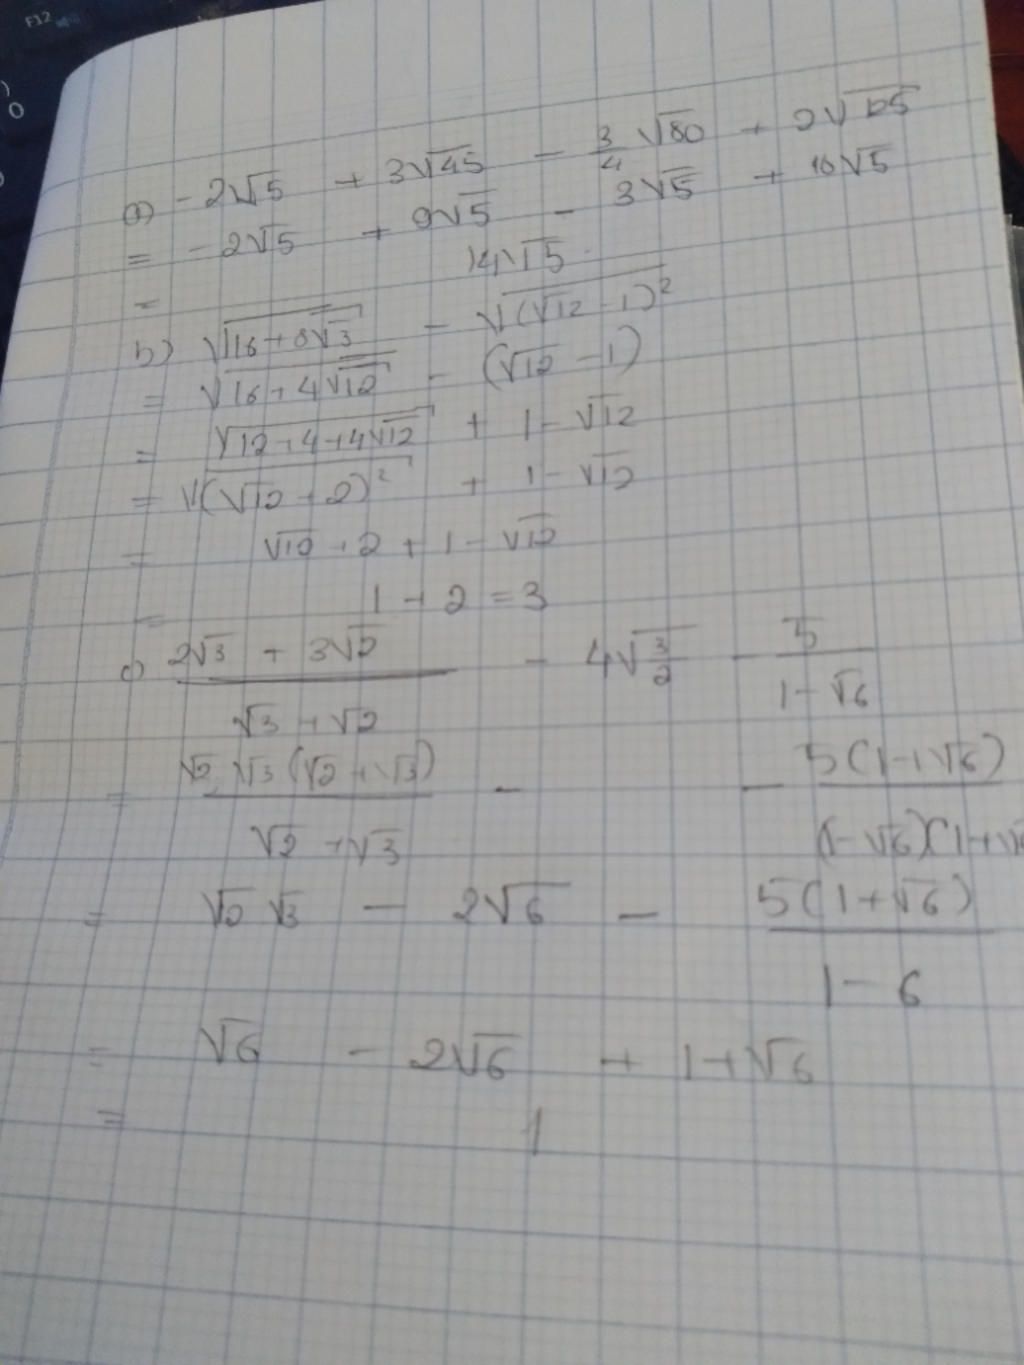 F12
a) -2√5 + 3√45 - 3/4 √80 + 2√125
= -2√5 + 9√5 - 3√5 + 10√5
= 14√5
b) √(16+8√3) - √((√12 - 1)²)
= √(16+4√12) - (√12 - 1)
= √(12+4+4√12) + 1 - √12
= √((√12 + 2)²) + 1 - √12
= √12 + 2 + 1 - √12
= 1 + 2 = 3
c) (2√3 + 3√2)/(√3 + √2) - 4√(3/2) - 5/(1-√6)
= (√2.√3(√2+√3))/(√2+√3) - - 5(1+√6)/((1-√6)(1+√6
= √2 √3 - 2√6 - 5(1+√6)/(1-6)
= √6 - 2√6 + 1+√6
= 1